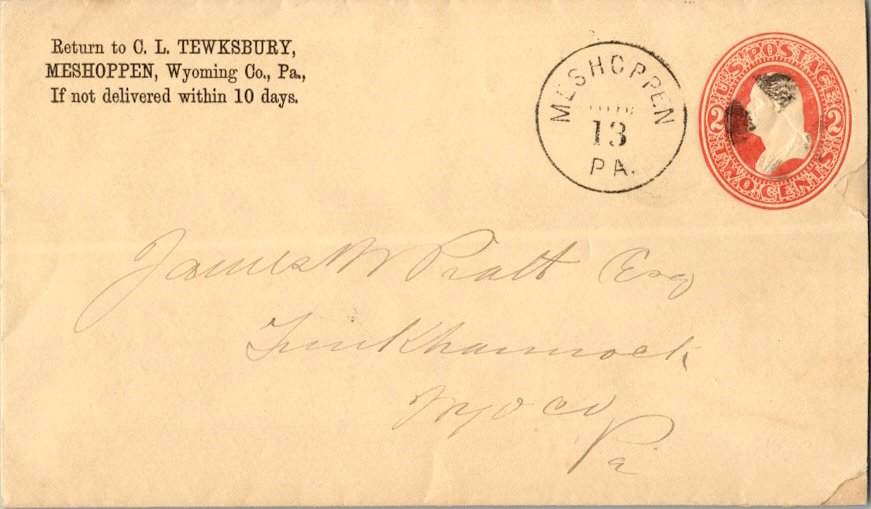 Return to C. L. TEWKSBURY,
MESHOPPEN, Wyoming Co., Pa.,
If not delivered within 10 days.
MESHOPPEN
13
PA.
U.S. POSTAGE
2 2
TWO CENTS
James W Pratt Esq
Tunkhannock
Wyo Co
Pa